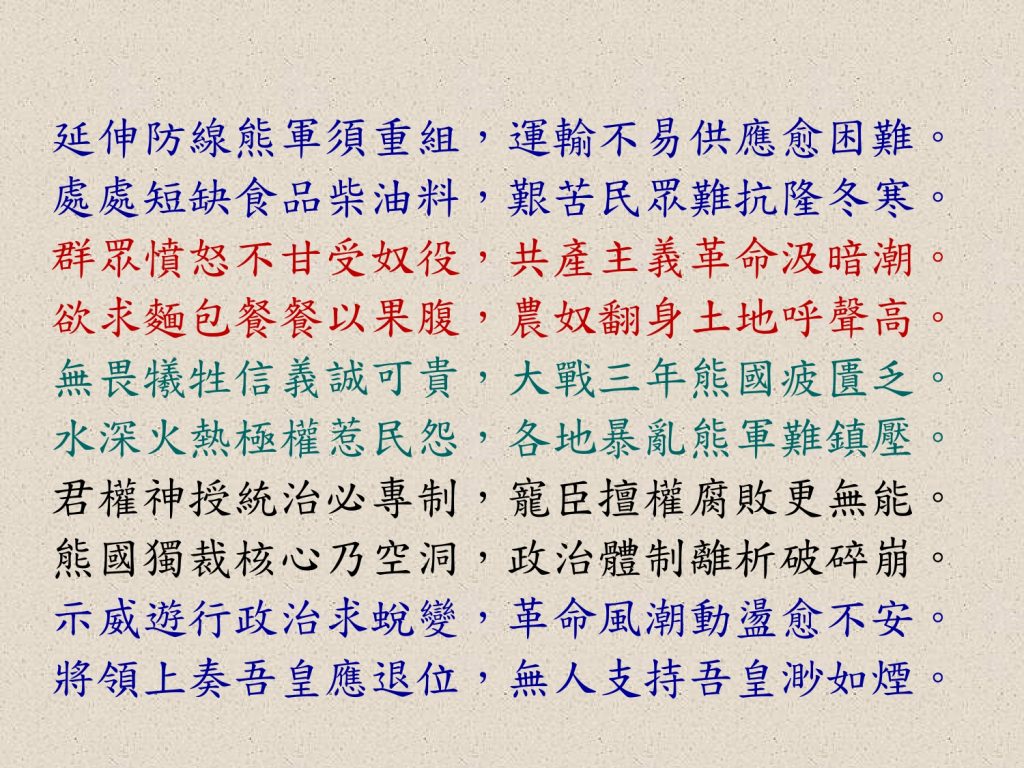 延伸防線熊軍須重組，運輸不易供應愈困難。
處處短缺食品柴油料，艱苦民眾難抗隆冬寒。
群眾憤怒不甘受奴役，共產主義革命汲暗潮。
欲求麵包餐餐以果腹，農奴翻身土地呼聲高。
無畏犧牲信義誠可貴，大戰三年熊國疲匱乏。
水深火熱極權惹民怨，各地暴亂熊軍難鎮壓。
君權神授統治必專制，寵臣擅權腐敗更無能。
熊國獨裁核心乃空洞，政治體制離析破碎崩。
示威遊行政治求蛻變，革命風潮動盪愈不安。
將領上奏吾皇應退位，無人支持吾皇渺如煙。